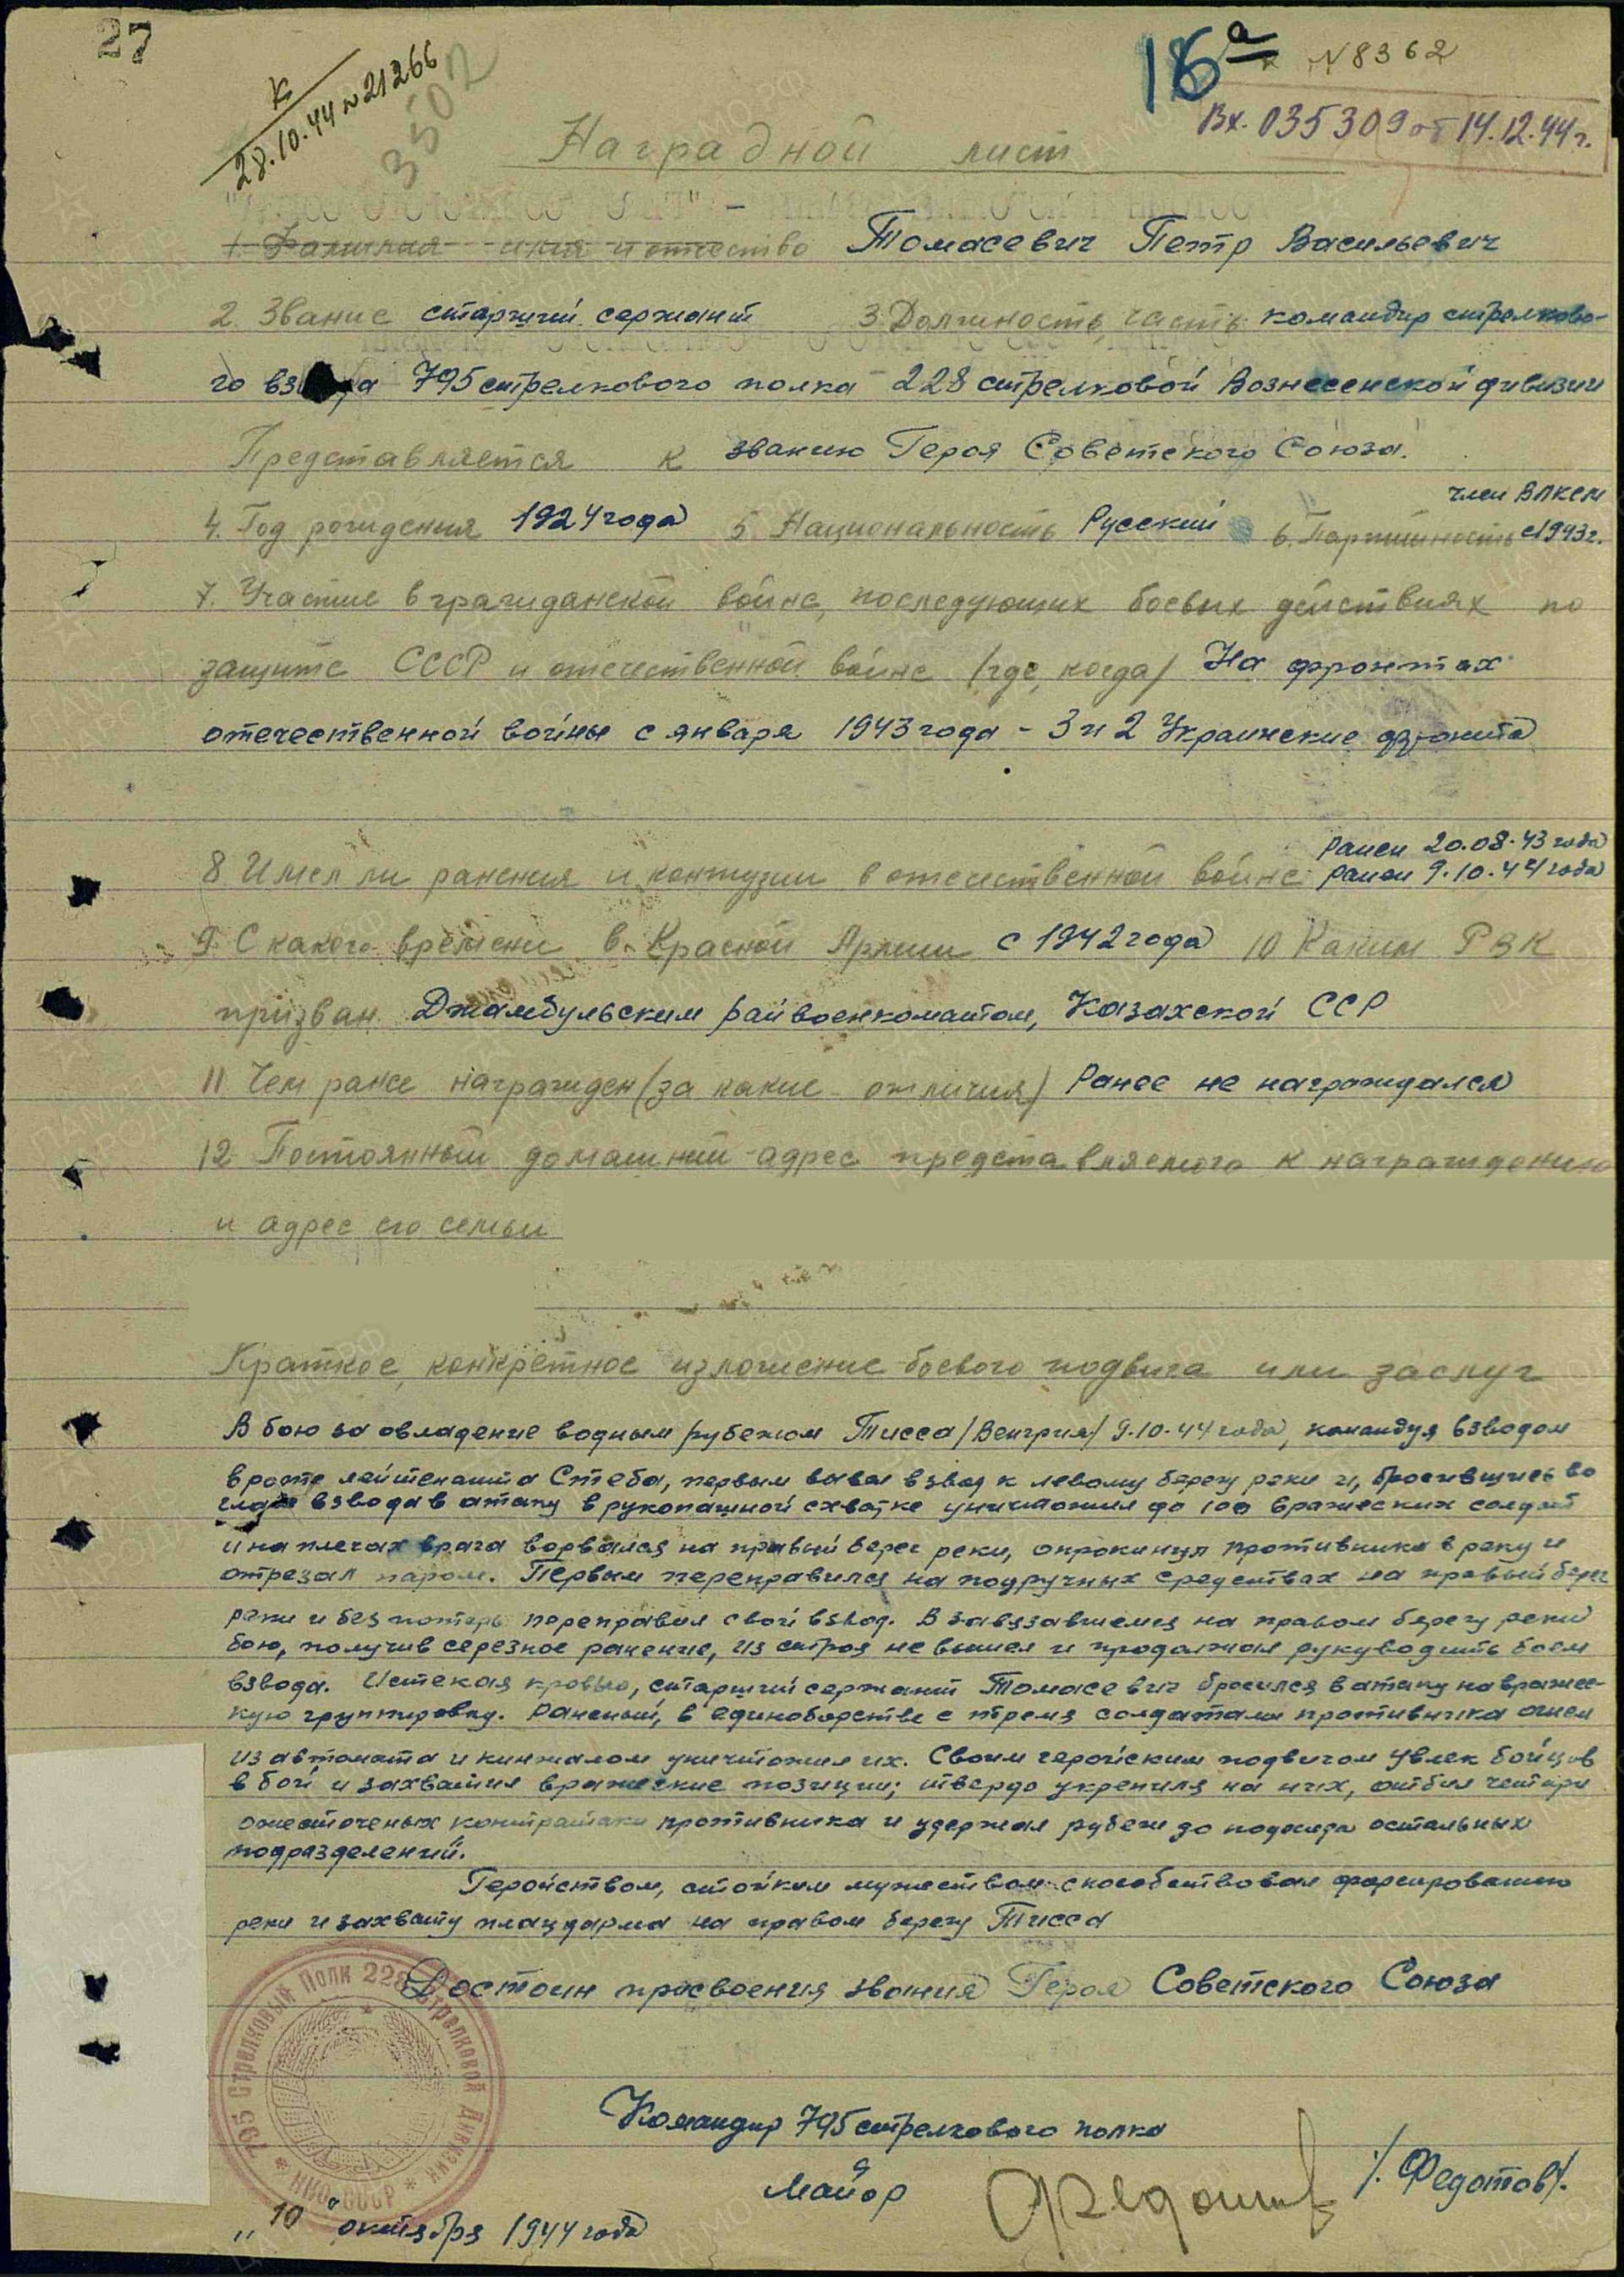 27
К
28.10.44 N 21266
3502
16а
N 8362
Вх. 035309 от 14.12.44 г.
Наградной лист
1. Фамилия имя и отчество Томасевич Петр Васильевич
2. Звание старший сержант 3. Должность, часть командир стрелково-
го взвода 795 стрелкового полка 228 стрелковой Вознесенской дивизии
Представляется к званию Героя Советского Союза.
член ВЛКСМ
4. Год рождения 1924 года 5. Национальность Русский 6. Партийность с 1943 г.
7. Участие в гражданской войне, последующих боевых действиях по
защите СССР и отечественной войне /где, когда/ На фронтах
отечественной войны с января 1943 года - 3 и 2 Украинские фронта
ранен 20.08.43 года
8. Имел ли ранения и контузии в отечественной войне ранен 9.10.44 года
9. С какого времени в Красной Армии с 1942 года 10 Каким РВК
призван Джамбульским райвоенкоматом, Казахской ССР
11 Чем ранее награжден (за какие отличия) Ранее не награждался
12 Постоянный домашний адрес представляемого к награждению
и адрес его семьи
Краткое, конкретное изложение боевого подвига или заслуг
В бою за овладение водным рубежом Тисса /Венгрия/ 9.10.44 года, командуя взводом
в роте лейтенанта Стеба, первым вывел взвод к левому берегу реки и, бросившись во
главе взвода в атаку в рукопашной схватке уничтожил до 100 вражеских солдат
и на плечах врага ворвался на правый берег реки, опрокинул противника в реку и
отрезал паром. Первым переправился на подручных средствах на правый берег
реки и без потерь переправил свой взвод. В завязавшемся на правом берегу реки
бою, получив серезное ранение, из строя не вышел и продолжал руководить боем
взвода. Истекая кровью, старший сержант Томасевич бросился в атаку на вражес-
кую группировку. Раненый, в единоборстве с тремя солдатами противника огнем
из автомата и кинжалом уничтожил их. Своим геройским подвигом увлек бойцов
в бой и захватил вражеские позиции; твердо укрепился на них, отбил четыре
ожесточеных контратаки противника и удержал рубеж до подхода остальных
подразделений.
Геройством, стойким мужеством способствовал форсированию
реки и захвату плацдарма на правом берегу Тисса
Достоин присвоения звания Героя Советского Союза
795 Стрелковый Полк 228 Стрелковой Дивизии * НКО-СССР *
Командир 795 стрелкового полка
Майор Федотов /Федотов/.
"10" октября 1944 года